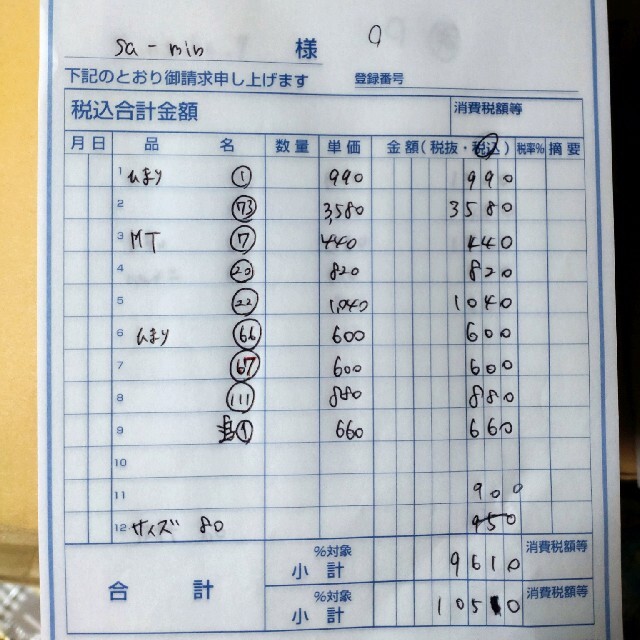 sa-min 様
下記のとおり御請求申し上げます 登録番号
税込合計金額 消費税額等
月 日 品 名 数量 単価 金額(税抜・税込) 税率% 摘要
1 ひまり ① 990 990
2 ㊆㊂ 3,580 3580
3 MT ⑰ 440 440
4 ⑳ 820 820
5 ㉒ 1,040 1040
6 ひまり 66 600 600
7 67 600 600
8 111 880 880
9 ① 660 660
10
11 900
12 サイズ 80 950
%対象 消費税額等
小計 9610
合計
%対象 消費税額等
小計 10510